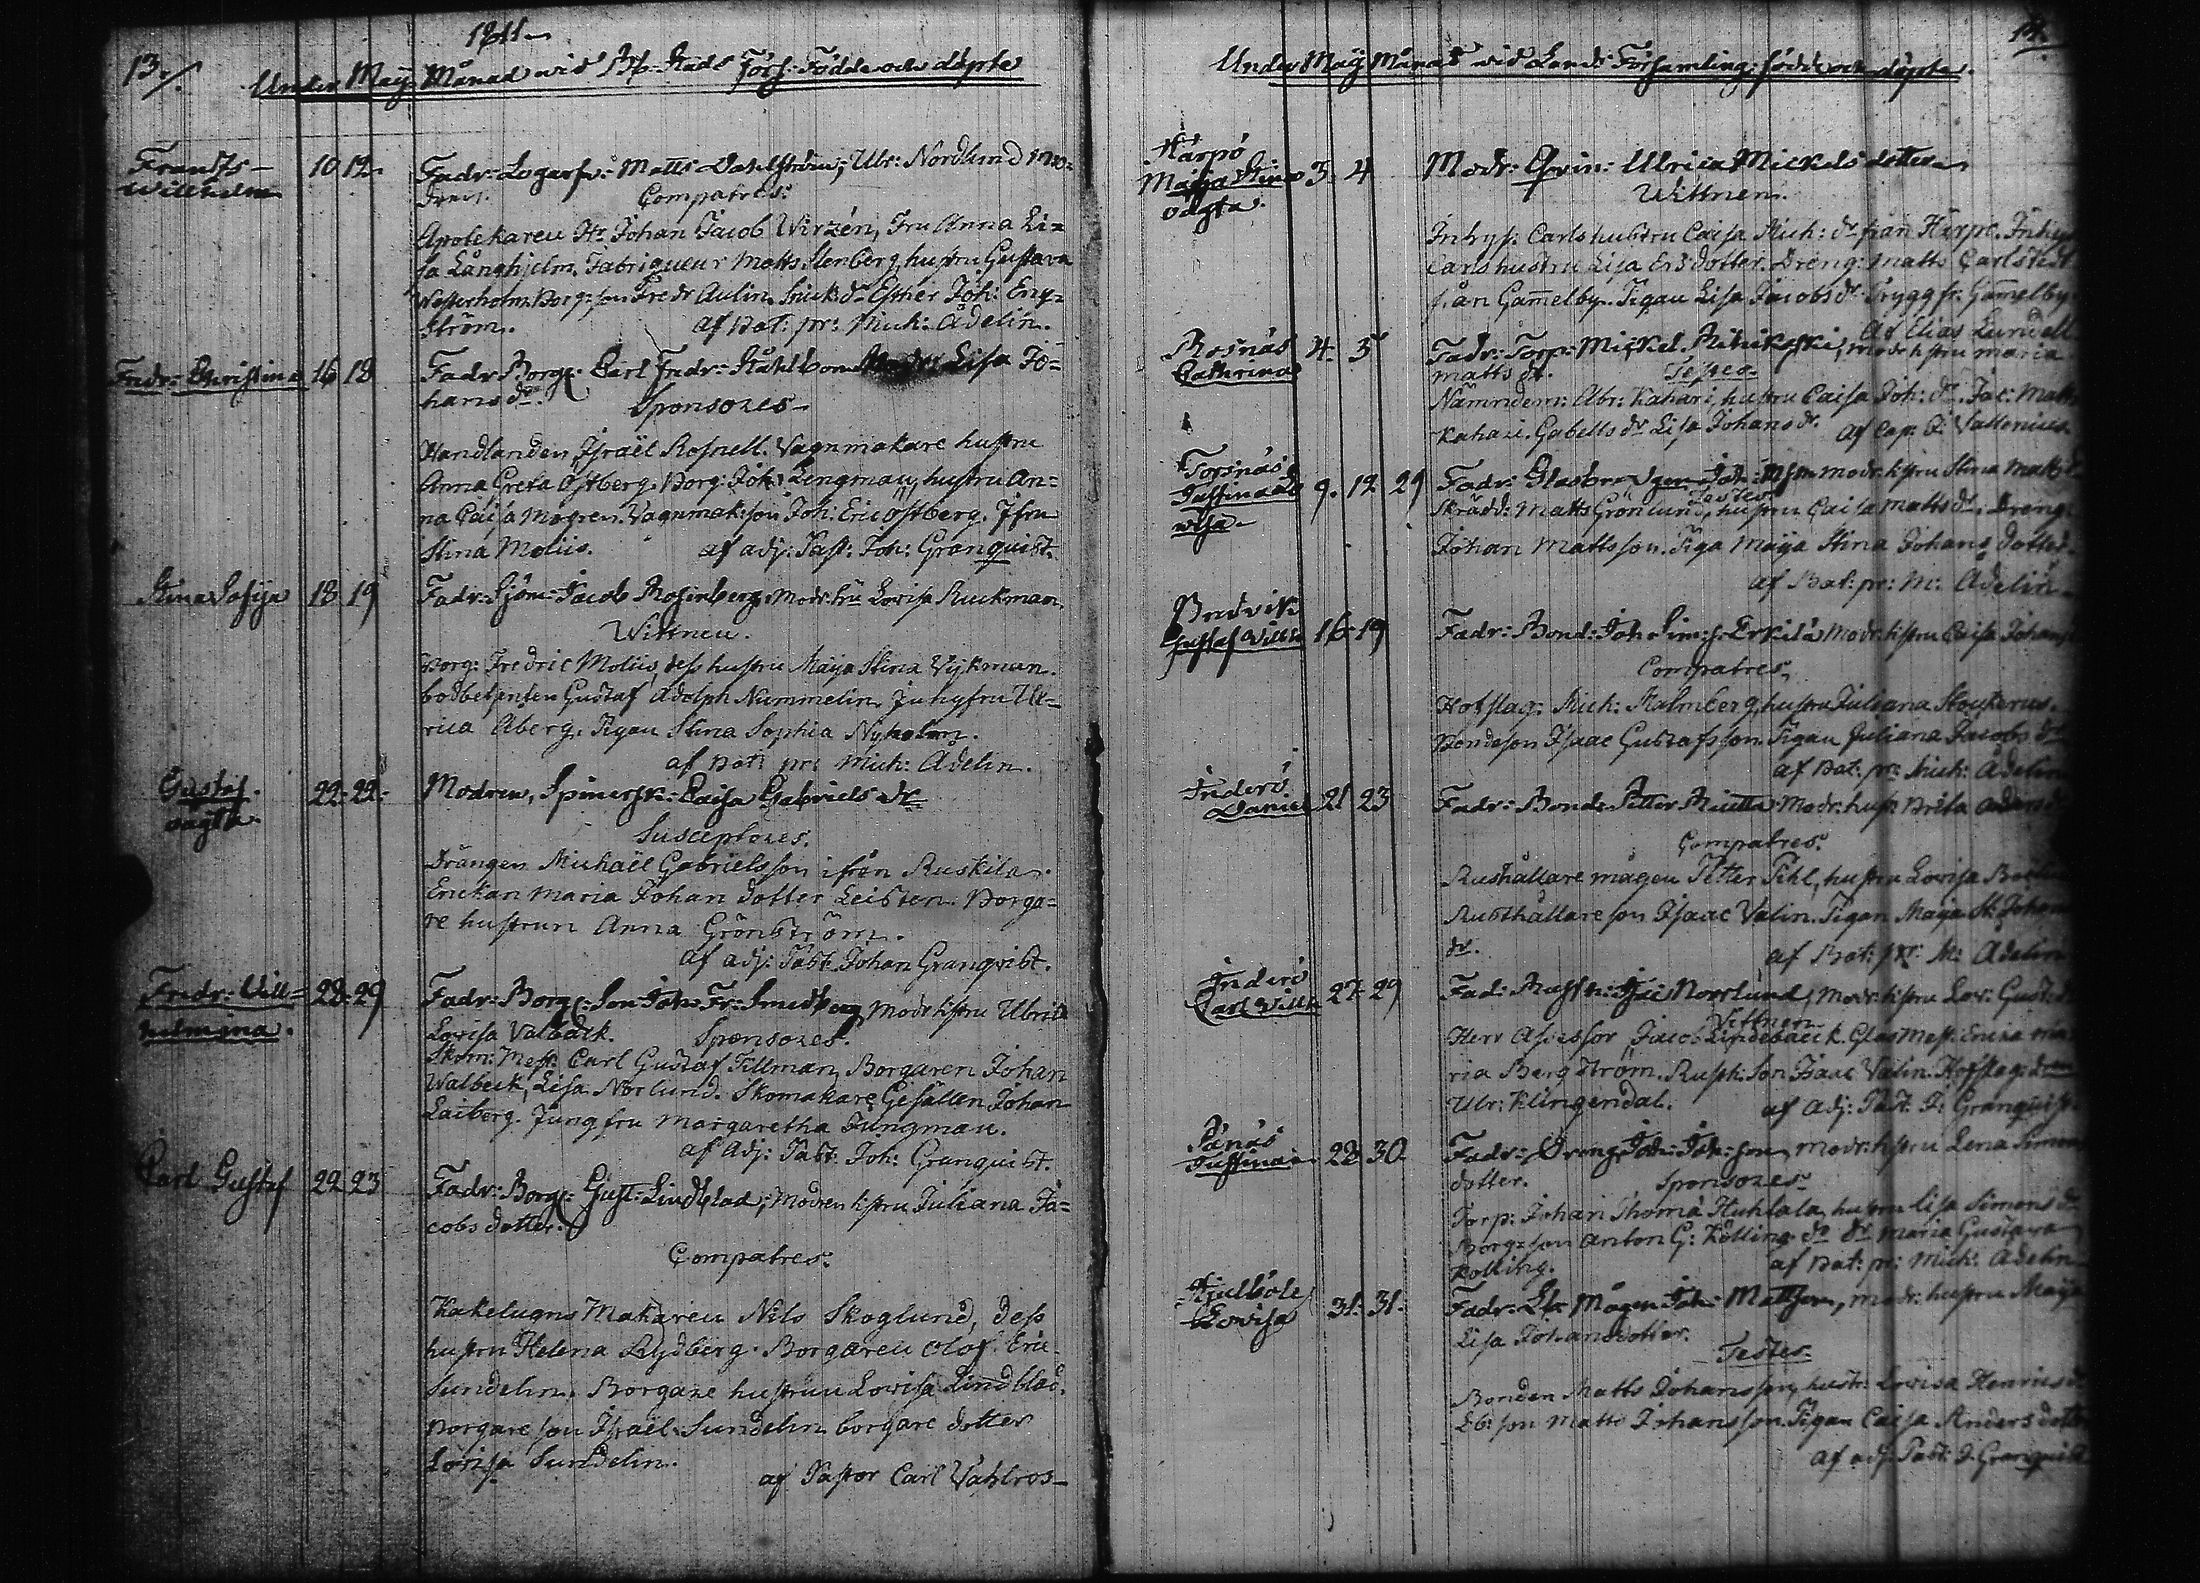 1811
13./.
Under Maÿ Månad wid Bb. Stads Förs: Födde och döpte
Frantz 10 12. Fadr: Matts Dahlström; Ulr: Nordlund Mo=
Willhelm dren. Compatres:
Apotekaren Hr Johan Jacob Wirzén, Fru Anna Li=
sa Långhjelm, Fabriqueur Matts Stenberg, hustru Gustava
Westerholm. Borg: son Fredr Aulin. Esther Joh: Eng=
ström. af Bat: pr: Mich: Ådelin.
Fredr: Christina 16 18 Fadr Borg: Carl Fredr: Modr Lisa Jo=
hans dr. Sponsores
Handlanden Israël Rosnell. Vagnmakare hustru
Anna Greta Östberg. Borg: Joh: Lengman, hustru An=
na Caisa Vagnmak: son Joh: Eric Östberg. Jfru
Stina Moliis. af adj: Past: Joh: Granquist.
Stina Sofija 18 19 Fadr: Sjöm: Jacob Rosenberg, Modr: hu Lovisa Ruckman
Wittnen.
Borg: Fredric Moliis, dess hustru Maija Stina Vijkman.
bodbetjenten Gustaf Adolph Nummelin. Junhfru Ul=
rica Åberg. Pigan Stina Sophia Nyholm.
af Bat: pr: Mich: Ådelin.
Gustaf 22. 22. Modren, Caisa Gabriels dr
oägta. Susceptores.
Drängen Michaël Gabrielsson ifrån Ruskila.
Enckan Maria Johan dotter Leisten. Borga=
re hustrun Anna Grönström.
af adj: Past Johan Granqvist.
Fredr: Will= 28. 29 Fadr: Borg: Son Johan Fr: Smedberg, Modr hstru Ulrica
helmina. Lovisa Valbäck. Sponsores.
Skom: Mest: Carl Gustaf Tillman, Borgaren Johan
Walbeck, Lisa Norlund. Skomakare Gesällen Johan
Laiberg. Jungfru Margaretha Jungman.
af Adj: Past: Joh: Granquist.
Carl Gustaf 22 23 Fadr: Borg: Gust: Lindblad; Modren hstru Juliana Ja=
cobs dotter.
Compatres:
Kakelugns Makaren Nils Skoglund, dess
hustru Helena Lydberg. Borgaren Olof Eric
Sundelin. Borgare hustrun Lovisa Lindblad.
Borgare son Israël Sundelin. borgare dotter
Lovisa Sundelin. af Pastor Carl Vahlros
14.
Under Maÿ Månad wid Lands Församling: födde och döpte.
Härpö
Maija Stina 3. 4 Modr: Ulrica Mickels dotter
oägta. Wittnen.
Inhys: Carls hustru Caisa Mich: dr från Härpö. Inhys
Carls hustru Lisa Ersdotter. Dreng: Matts Carlstedt
från Gam̄elby. Pigan Lisa Jacobs dr Trygg fr: Gam̄elby.
af Elias Lundell
Rosnäs 4. 5 Fadr: Torp: Mickel Modr hstru Maria
Cathrina matts dr. Testes.
Nämndem: Abr: Kahari, hustru Caisa Joh: dr. Jac: Matts
Kahari. Gabells dr Lisa Johans dr. af Cap: Vallenius.
Torsnäs
Justina 9. 12. 29 Fadr: Modr: hstru Stina Matts dr
Testes
Skrädd: Matts Grönlund, hustru Caisa Matts dr. Dreng:
Johan Mattsson. Piga Maija Stina Johans dotter.
af Bat: pr: M: Ådelin
Gustaf Willh 16. 19 Fadr: Bond: Joh Sim: s: Erkilä Modr: hstru Caisa Johans
Compatres.
Hofslag: Mich: Malmberg, hustru Juliana
Bondeson Isaac Gustafsson. Pigan Juliana Jacobs dr
af Bat: pr: Mich: Ådelin
Inderö
Daniel 21 23 Fadr: Bonde Petter Modr: hust: Brita
Compatres.
Rusthållare mågen Petter Pihl, hustru Lovisa
Rusthållare son Isaac Valin. Pigan Maija St: Johans
dr. af Bat: pr: M: Ådelin
Inderö
Carl Willh 27. 29 Fad: Norrlund, Modr: hstru Lov: Gust:
Wittnen
Herr Assessor Jacob Lindebäeck. Glas Mest: Ericca Ma
ria Bergström. Rusth: Son Isaac Valin. Hofslag: dr
Ulr: Klingendal. af Adj: Past: J: Granquist
Pänäs
Justina 28. 30. Fadr: Dreng: Joh: Joh: son, Modr: hstru Lena Simons
dotter. Sponsores
Torp: Johan Thoma Huhtala, hustru Lisa Simons dr
Borg: son Anton G: Kölling do dr Maria Gustava
Kolling. af Bat: pr: Mich: Ådelin
Hjulböle
Lovisa 31. 31. Fadr: Lb: Mågen Joh: Mattsson, Modr: hustru Maija
Lisa Johansdotter.
Testes.
Bonden Matts Johansson, hustr: Lovisa Henrics dr
Lb: son Matts Johansson. Pigan Caisa Anders dotter
af adj: Past: J: Granquist